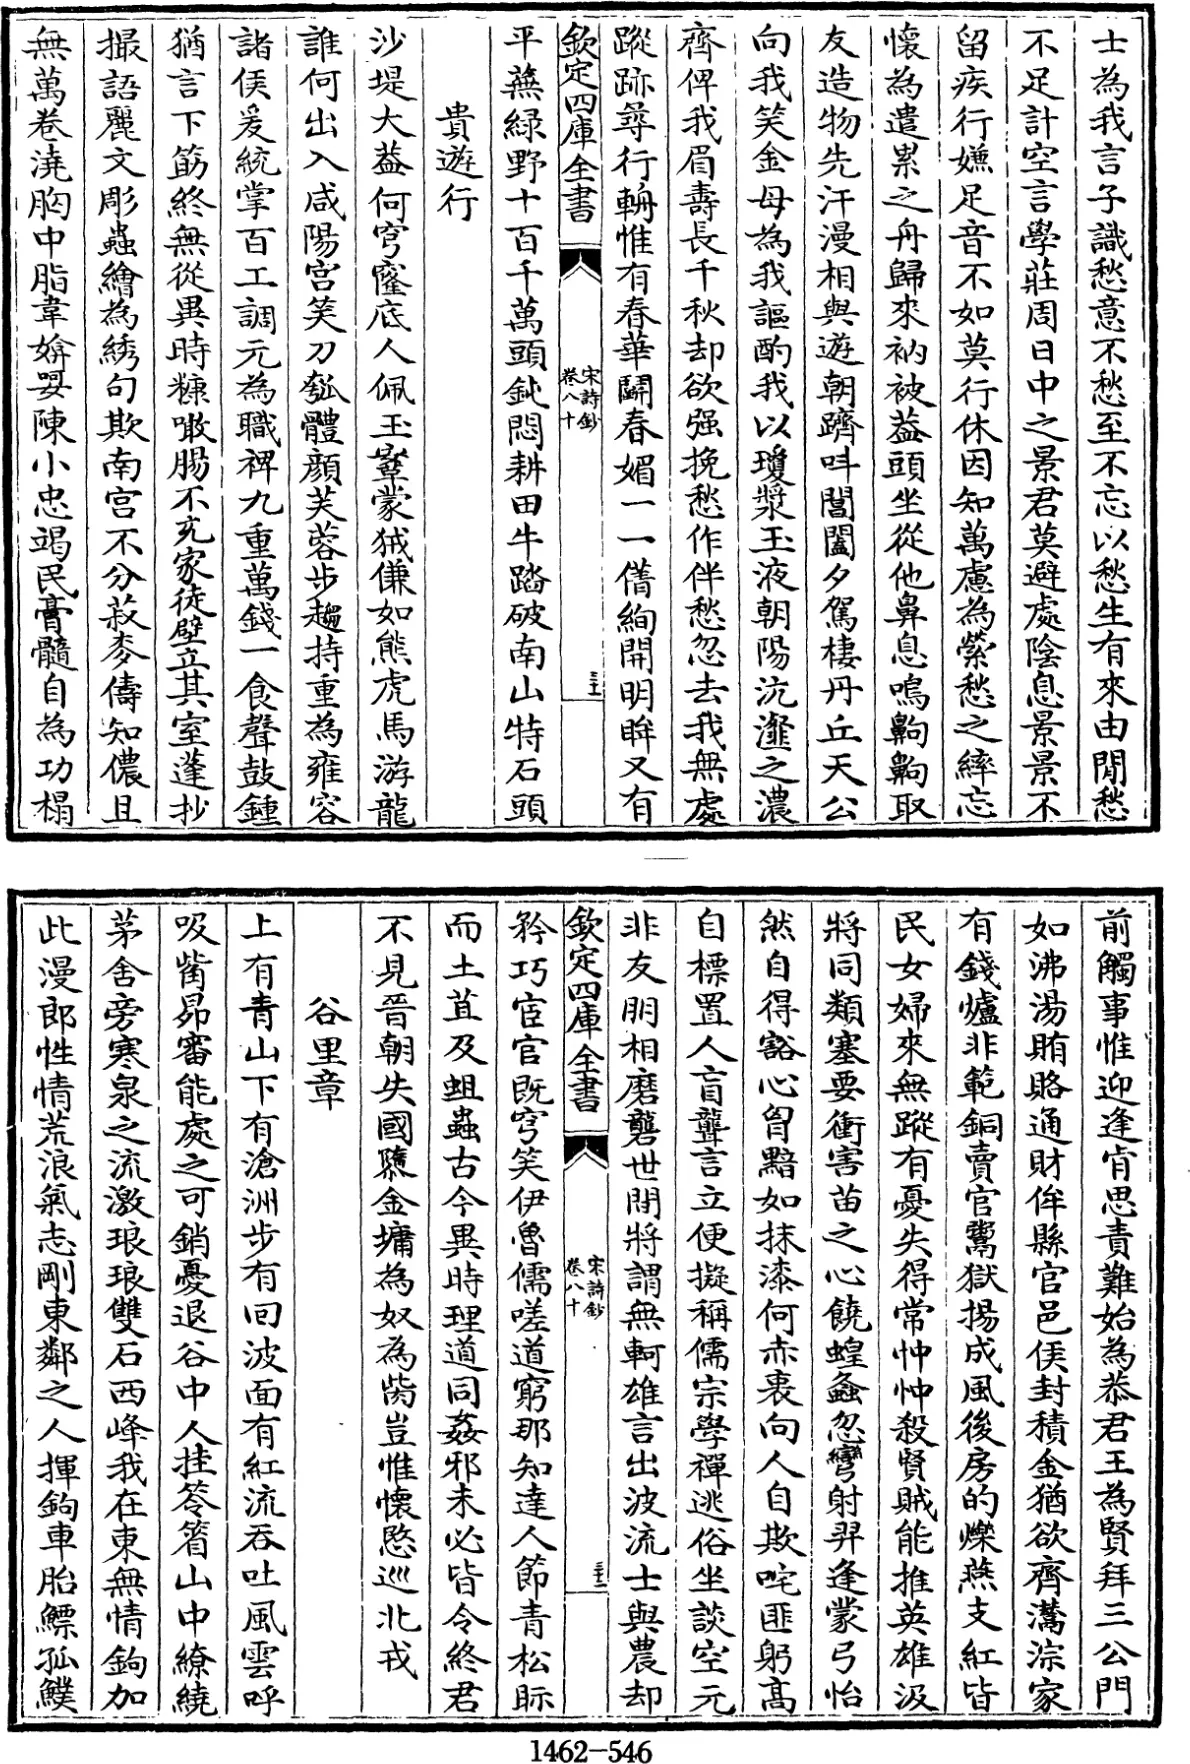 士為我言子識愁意不愁至不忘以愁生有來由閒愁
不足計空言學莊周日中之景君莫避處陰息景景不
留疾行嫌足音不如莫行休因知萬慮為縈愁之縡忘
懷為遣累之舟歸來衲被蓋頭坐從他鼻息鳴齁齁取
友造物先汗漫相與遊朝躋叫閶闔夕駕棲丹丘天公
向我笑金母為我謳酌我以瓊漿玉液朝陽沆瀣之濃
齊俾我眉壽長千秋却欲强挽愁作伴愁忽去我無處
蹤跡尋行輈惟有春華鬬春媚一一借絢開明眸又有
欽定四庫全書
宋詩鈔
卷八十
平蕪緑野十百千萬頭鈍悶耕田牛踏破南山特石頭
貴遊行
沙堤大葢何穹窿底人佩玉鞶蒙狨傔如熊虎馬游龍
誰何出入咸陽宫笑刀匏體顔芙蓉步趨持重為雍容
諸侯爰統掌百工調元為職裨九重萬錢一食聲鼓鍾
猶言下筯終無從異時糠噉腸不充家徒壁立其室蓬抄
撮語麗文彫蟲繪為綉句欺南宫不分菽麥儔知儂且
無萬卷澆胸中脂韋媕娿陳小忠竭民膏髓自為功榻
前觸事惟迎逢肯思責難始為恭君王為賢拜三公門
如沸湯賄賂通財侔縣官邑侯封積金猶欲齊灊淙家
有錢爐非範銅賣官鬻獄揚成風後房的爍燕支紅皆
民女婦來無蹤有憂失得常忡忡殺賢賊能推英雄汲
將同類塞要衝害苗之心饒蝗螽忽彎射羿逢蒙弓怡
然自得豁心胷黯如抹漆何赤衷向人自欺咤匪躬髙
自標置人盲聾言立便擬稱儒宗學禪逃俗坐談空元
非友朋相磨礱世閉將謂無軻雄言出波流士與農却
欽定四庫全書
宋詩鈔
卷八十
矜巧宦官既穹笑伊魯儒嗟道窮那知達人節青松眎
而土苴及蛆蟲古今異時理道同姦邪未必皆令終君
不見晉朝失國隳金墉為奴為胔豈惟懷愍巡北戎
谷里章
上有青山下有滄洲步有回波面有紅流吞吐風雲呼
吸觜昴審能處之可銷憂退谷中人挂笭箵山中繚繞
茅舍旁寒泉之流激琅琅雙石西峰我在東無情鉤加
此漫郎性情荒浪氣志剛東鄰之人揮鉤車胎鱮孤鰷
1462-546